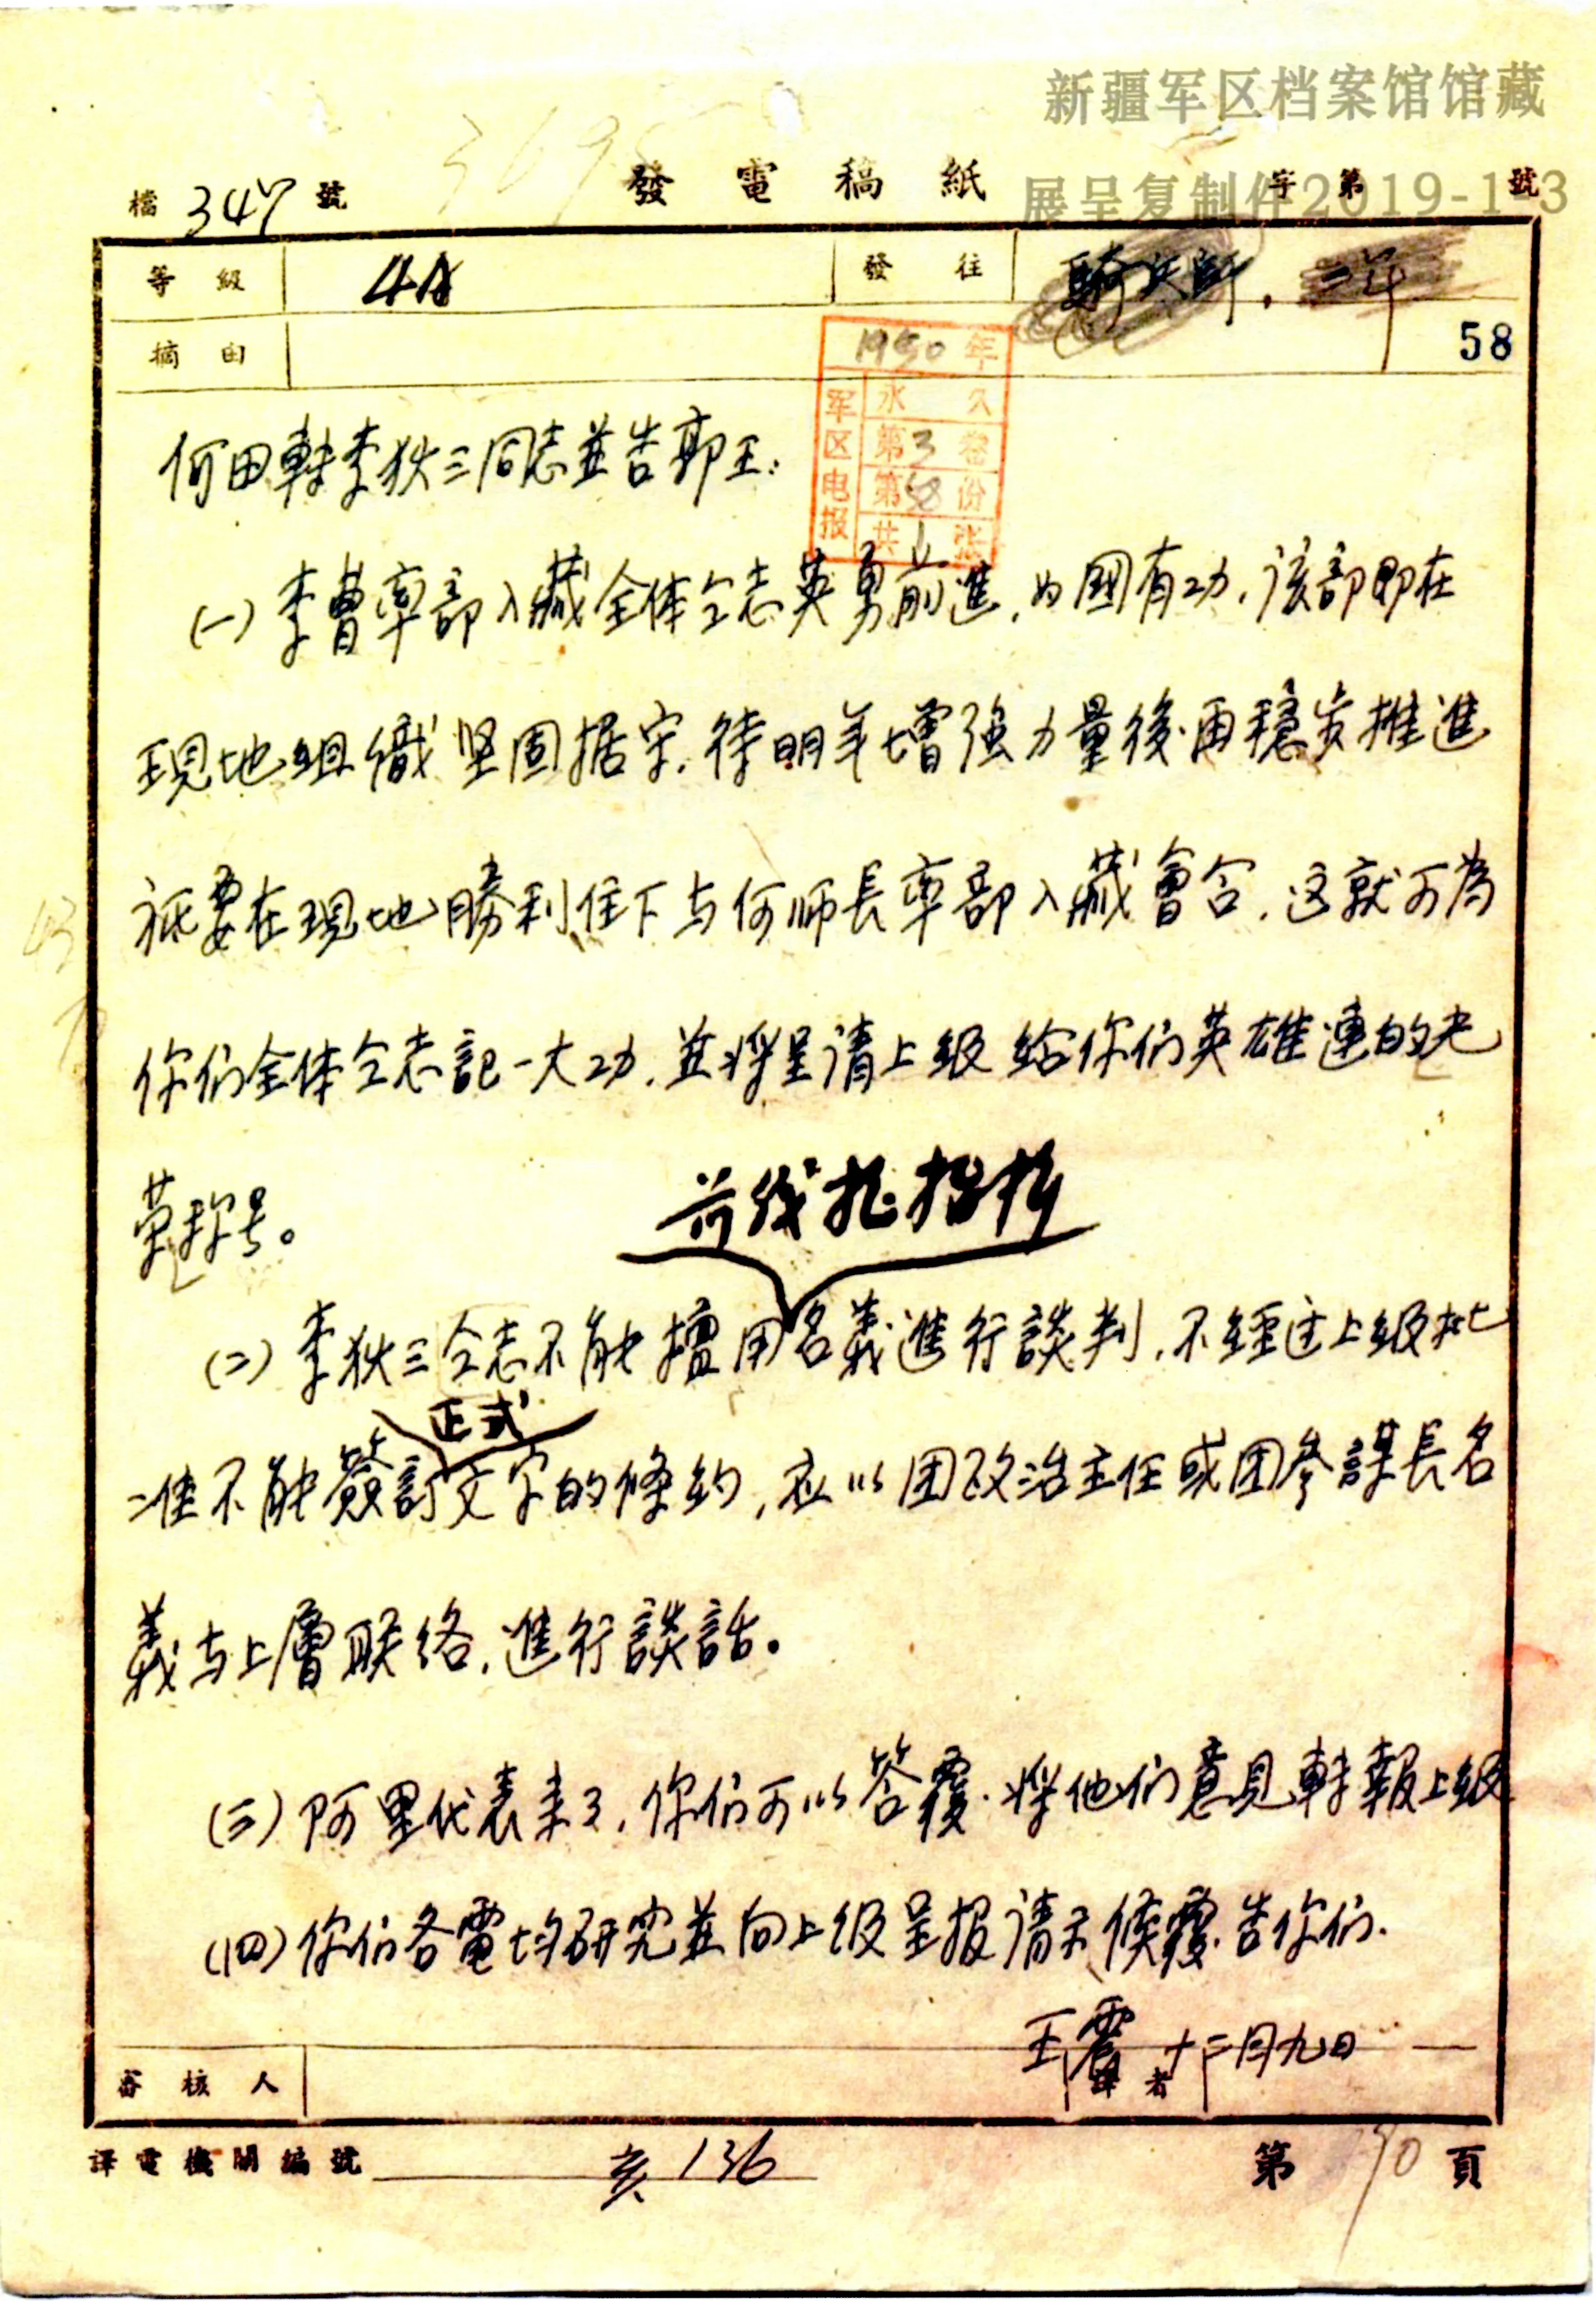 新疆军区档案馆馆藏
展呈复制件2019-1-3
檔 347 號 發電稿紙 字第 號
等級 4A 發往 騎兵師.
摘由 58
1950年
军区电报
永久
第3卷
第58份
共1张
何田轉李狄三同志並告郭王:
(一)李曹率部入藏全体仝志英勇前進,为國有功,该部即在
現地組織坚固据守,待明年增强力量後再穩步推進
祇要在現地勝利住下与何师長率部入藏會合,这就可為
你们全体仝志記一大功,並将呈请上级给你们英雄連的光
荣称号。
前线指揮
(二)李狄三仝志不能擅用名義進行談判,不經过上级批
正式
准不能簽訂文字的條約,应以团政治主任或团參謀長名
義与上層联络,進行談話。
(三)阿里代表来了,你们可以答覆.将他们意見轉報上级
(四)你们各電均研究並向上级呈报请示候覆告你们.
王震 十二月九日
審核人 譯者
譯電機關編號 亥136 第 90 頁